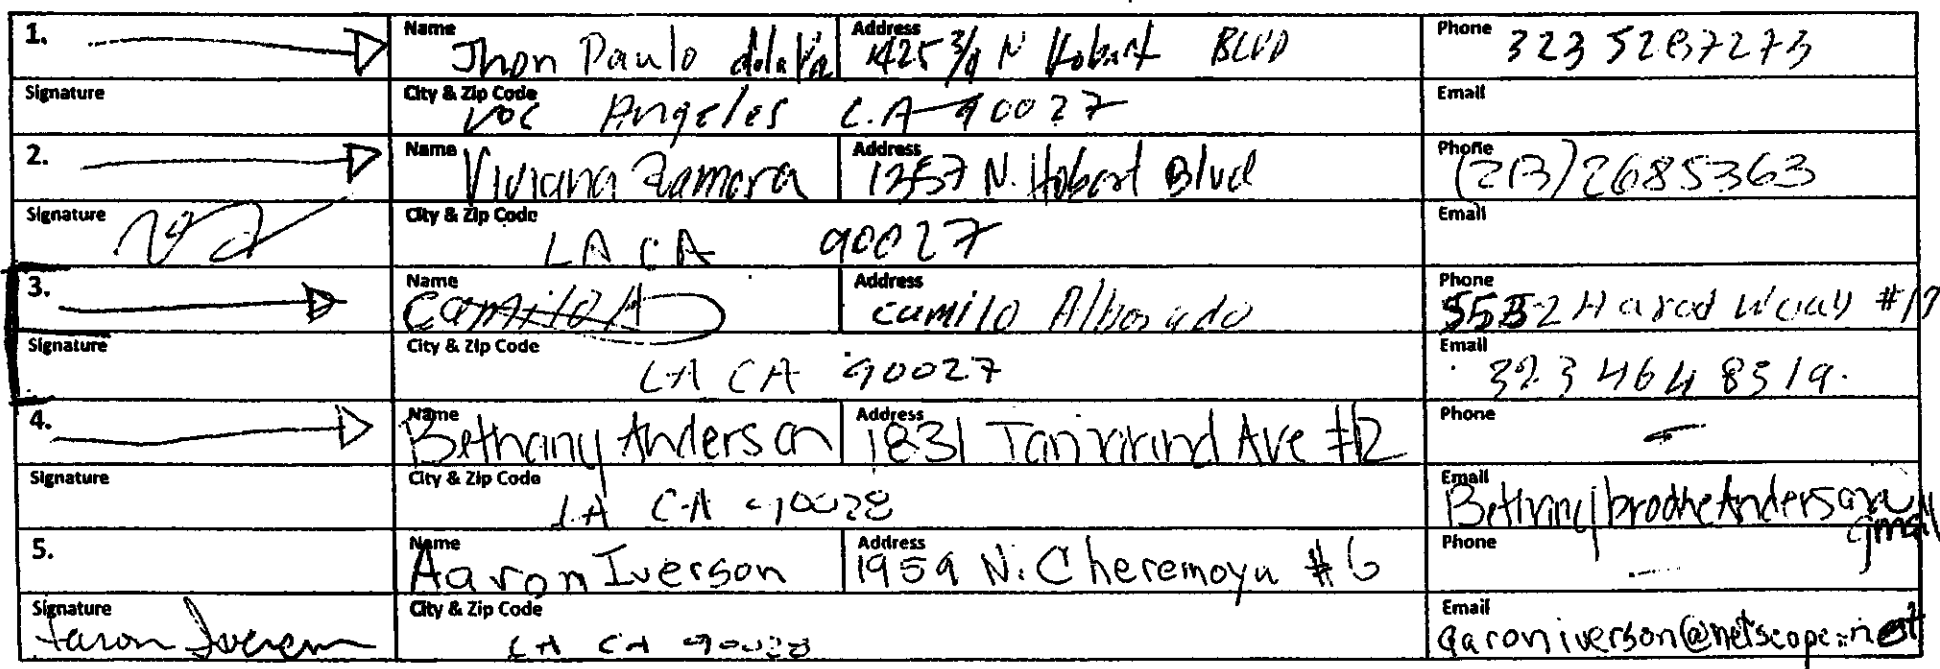 1. Name Jhon Paulo dela Address 1425 3/4 N Hobart BLVD Phone 323 5287273
Signature City & Zip Code Los Angeles C.A 90027 Email
2. Name Viviana Zamora Address 1357 N. Hobart Blvd Phone (213) 2685363
Signature City & Zip Code LA CA 90027 Email
3. Name Camilo A Address camilo Albarado Phone #17
Signature City & Zip Code LA CA 90027 Email 323 464 8319.
4. Name Bethany Anderson Address 1831 Tamarind Ave #12 Phone -
Signature City & Zip Code LA CA 90028 Email
gmail
5. Name Aaron Iverson Address 1959 N. Cheremoya #6 Phone -
Signature Aaron Iverson City & Zip Code LA CA 90028 Email aaroniverson@netscape.net